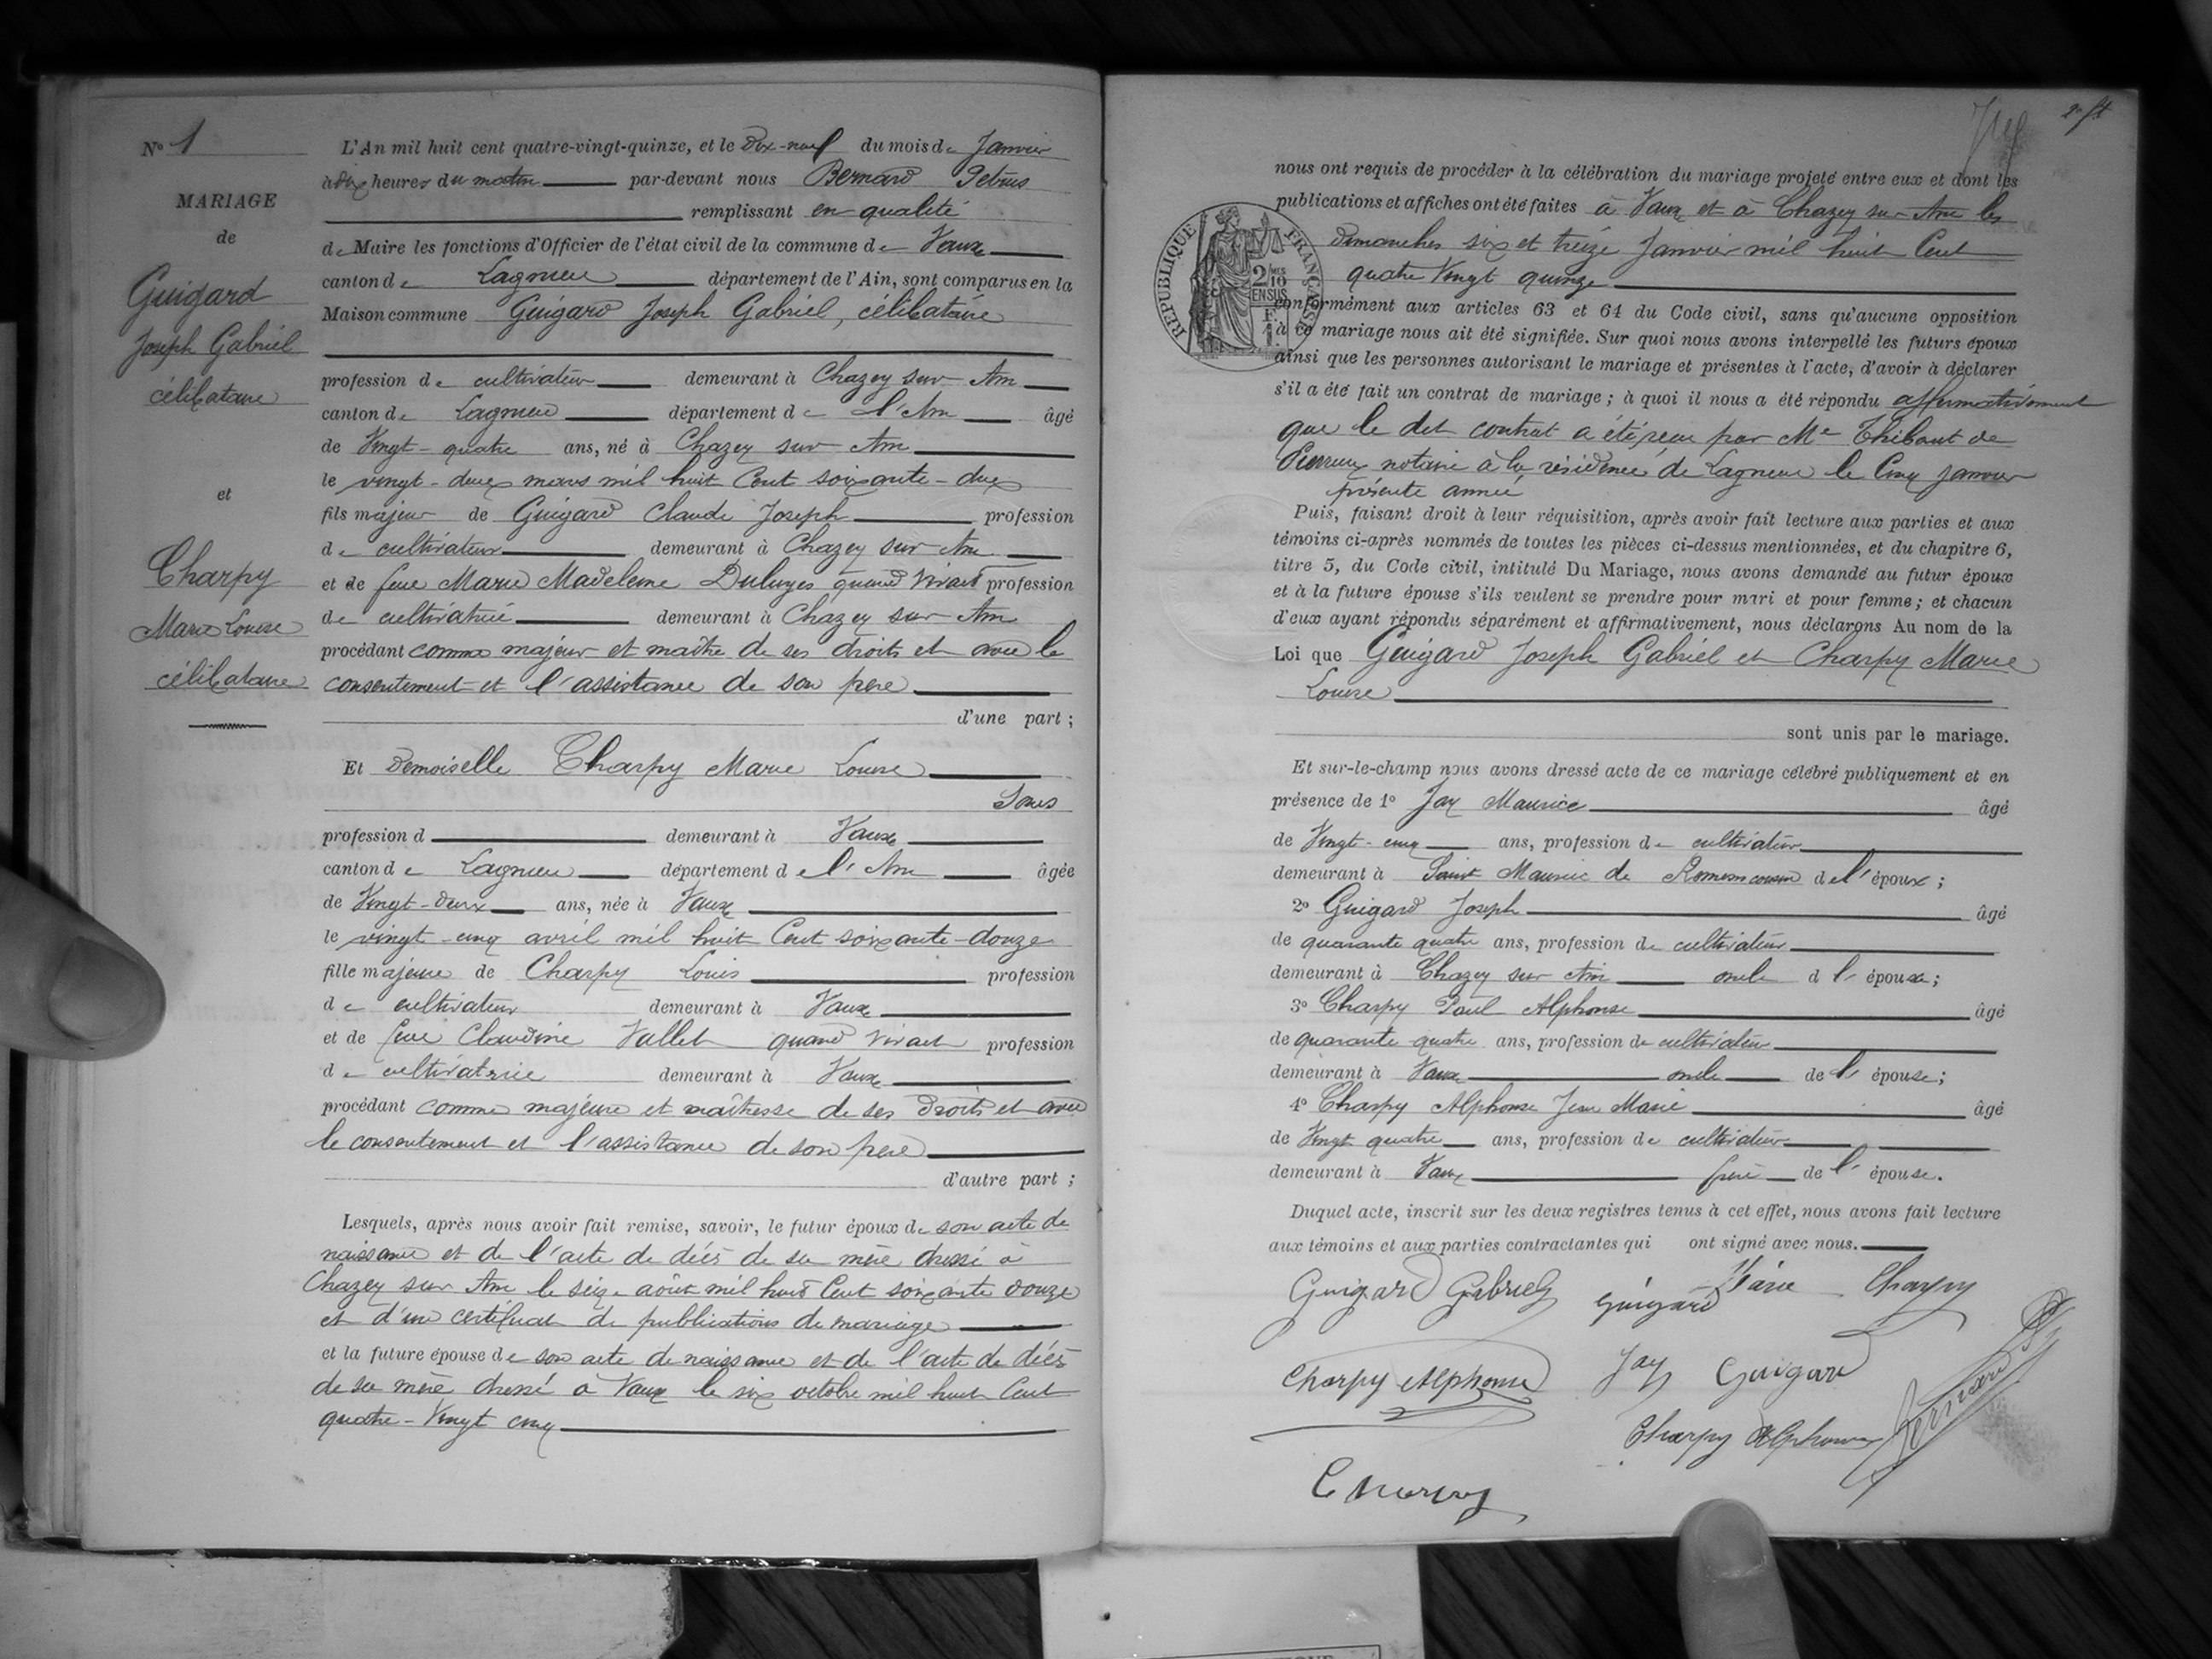 N° 1
MARIAGE
de
Guigard
Joseph Gabriel
célibataire
et
Charpy
Marie Louise
célibataire
L'An mil huit cent quatre-vingt-quinze, et le Dix-neuf du mois de Janvier
à dix heures du matin par-devant nous Bernard Petrus
remplissant en qualité
de Maire les fonctions d'Officier de l'état civil de la commune de Vaux
canton de Lagnieu département de l'Ain, sont comparus en la
Maison commune Guigard Joseph Gabriel, célibataire
profession de cultivateur demeurant à Chazey sur Ain
canton de Lagnieu département de l'Ain âgé
de Vingt-quatre ans, né à Chazey sur Ain
le vingt-deux mars mil huit Cent soixante-dix
fils majeur de Guigard Claude Joseph profession
de cultivateur demeurant à Chazey sur Ain
et de feue Marie Madeleine quand vivait profession
de cultivatrice demeurant à Chazey sur Ain
procédant comme majeur et maître de ses droits et avec le
consentement et l'assistance de son père
d'une part ;
Et Demoiselle Charpy Marie Louise
Sans
profession d demeurant à Vaux
canton de Lagnieu département de l'Ain âgée
de Vingt-deux ans, née à Vaux
le vingt-cinq avril mil huit Cent soixante-douze
fille majeure de Charpy Louis profession
de cultivateur demeurant à Vaux
et de feue Claudine Vallet quand vivait profession
de cultivatrice demeurant à Vaux
procédant comme majeure et maîtresse de ses droits et avec
le consentement et l'assistance de son père
d'autre part ;
Lesquels, après nous avoir fait remise, savoir, le futur époux de son acte de
naissance et de l'acte de décès de sa mère dressé à
Chazey sur Ain le seize août mil huit Cent soixante douze
et d'un certificat de publications de mariage
et la future épouse de son acte de naissance et de l'acte de décès
de sa mère dressé à Vaux le six octobre mil huit Cent
quatre-Vingt cinq
2e ft
nous ont requis de procéder à la célébration du mariage projeté entre eux et dont les
publications et affiches ont été faites à Vaux et à Chazey sur Ain les
dimanches six et treize Janvier mil huit Cent
quatre Vingt quinze
RÉPUBLIQUE FRANÇAISE
conformément aux articles 63 et 64 du Code civil, sans qu'aucune opposition
à ce mariage nous ait été signifiée. Sur quoi nous avons interpellé les futurs époux
ainsi que les personnes autorisant le mariage et présentes à l'acte, d'avoir à déclarer
s'il a été fait un contrat de mariage ; à quoi il nous a été répondu affirmativement
que le dit contrat a été reçu par Me Thibaut de
notaire à la résidence de Lagnieu le Cinq janvier
présente année
Puis, faisant droit à leur réquisition, après avoir fait lecture aux parties et aux
témoins ci-après nommés de toutes les pièces ci-dessus mentionnées, et du chapitre 6,
titre 5, du Code civil, intitulé Du Mariage, nous avons demandé au futur époux
et à la future épouse s'ils veulent se prendre pour mari et pour femme ; et chacun
d'eux ayant répondu séparément et affirmativement, nous déclarons Au nom de la
Loi que Guigard Joseph Gabriel et Charpy Marie
Louise
sont unis par le mariage.
Et sur-le-champ nous avons dressé acte de ce mariage célébré publiquement et en
présence de 1° Jay Maurice âgé
de Vingt-cinq ans, profession de cultivateur
demeurant à Saint Maurice de Rémens cousin de l'époux ;
2° Guigard Joseph âgé
de quarante quatre ans, profession de cultivateur
demeurant à Chazey sur Ain oncle d l' époux ;
3° Charpy Paul Alphonse âgé
de quarante quatre ans, profession de cultivateur
demeurant à Vaux oncle de l' épouse ;
4° Charpy Alphonse Jean Marie âgé
de Vingt quatre ans, profession de cultivateur
demeurant à Vaux frère de l' épouse.
Duquel acte, inscrit sur les deux registres tenus à cet effet, nous avons fait lecture
aux témoins et aux parties contractantes qui ont signé avec nous.
Guigard Gabriel Guigard Marie Charpy
Charpy Alphonse Jay Guigard
Charpy Alphonse Bernard
Charpy